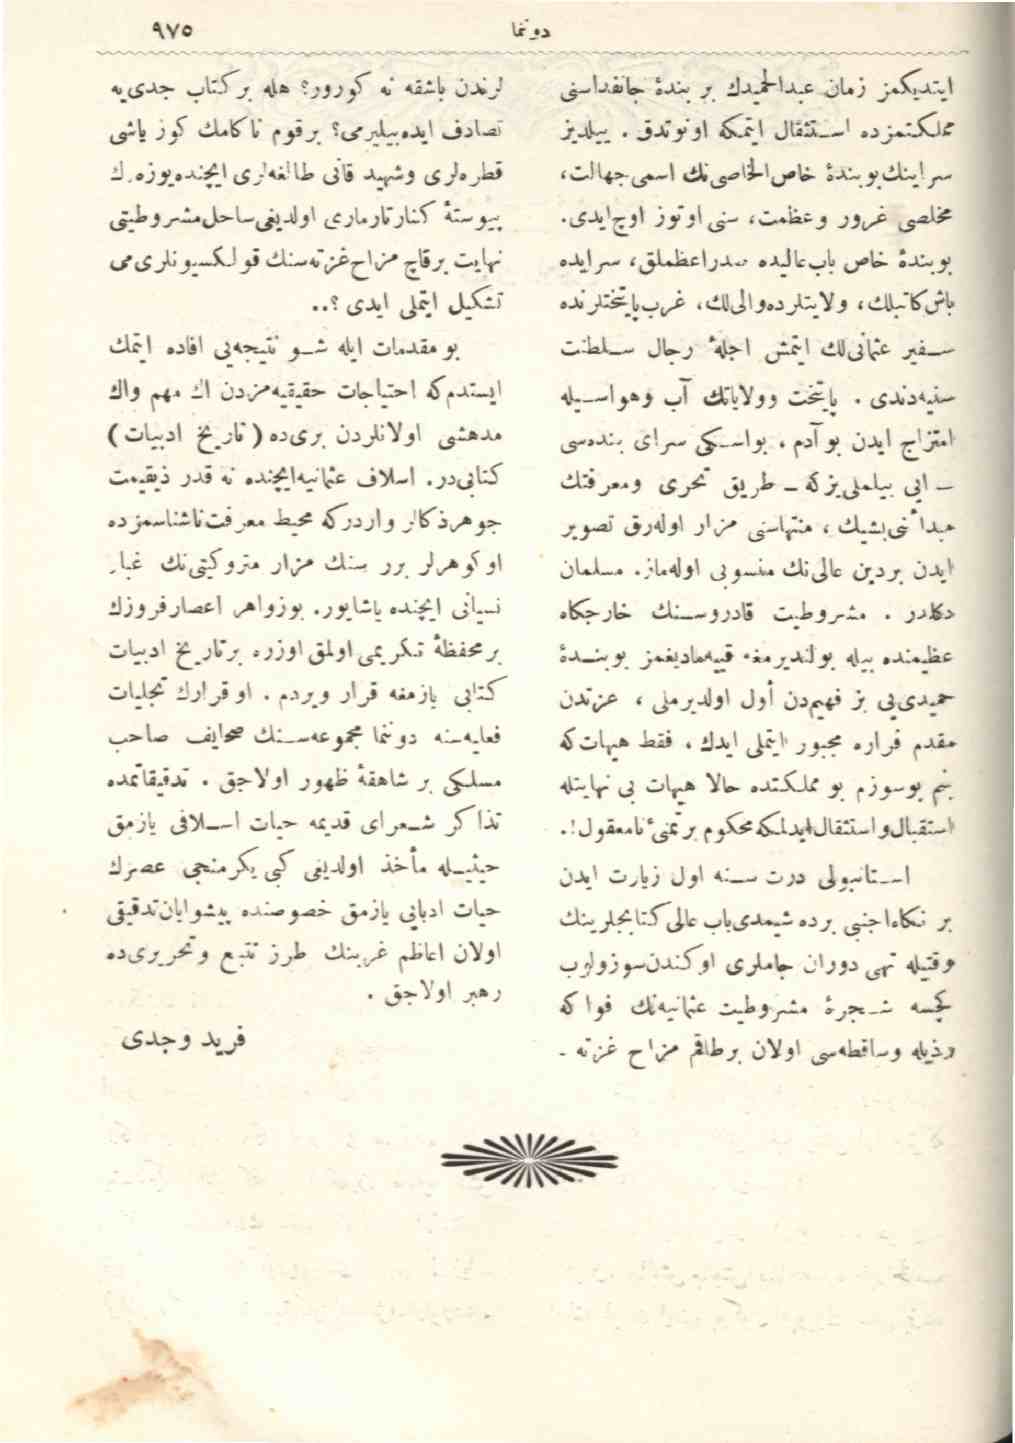 دوننما
٩٧٥
ایتدیكمز زمان عبدالحمیدك بر بندهٔ جانفداسنی
مملكتمزده استثقال ایتمكه اونوتدق . ییلدیز
سراینك بوبندهٔ خاص الخاصی‌نك اسمی جهالت،
مخلصی غرور وعظمت، سنی اوتوز اوچ ایدی.
بوبندهٔ خاص باب‌عالیده صدراعظملق، سرایده
باش كاتبلك، ولایتلرده والی‌لك، غرب پایتختلرنده
سفیر عثمانی‌لك ایتمش اجلهٔ رجال سلطنت
سنیه‌دندی . پایتخت وولایاتك آب وهواسیله
امتزاج ایدن بوآدم، بواسكی سرای بنده‌سی
ـ ایی بیلملی‌یزكه ـ طریق تحری ومعرفتك
مبدأنی بشیك ، منتهاسنی مزار اوله‌رق تصویر
ایدن بردین عالی‌نك منسوبی اوله‌ماز. مسلمان
دكلدر . مشروطیت قادروسنك خارجگاه
عظیمنده بیله بولندیرمغه قییه‌مادیغمز بوبندهٔ
حمیدی‌یی بز فهیم‌دن أول اولدیرملی ، عزتدن
مقدم فراره مجبور ایتملی ایدك ، فقط هیهات‌كه
بنم بوسوزم بو مملكتده حالا هیهات بی نهایتله
استقبال واستثقال ایدلمكه محكوم برتمنیٔ نامعقول!.
استانبولی درت سنه اول زیارت ایدن
بر نگاه اجنبی برده شیمدی باب عالی كتابجلرینك
وقتیله تهی دوران جاملری اوكندن سوزولوب
كچسه شجرهٔ مشروطیت عثمانیه‌نك فواكه
رذیله وساقطه‌سی اولان برطاقم مزاح غزته ـ
لرندن باشقه نه كورور؟ هله بر كتاب جدی‌یه
تصادف ایده‌بیلیرمی؟ برقوم ناكامك كوز یاشی
قطره‌لری وشهید قانی طالغه‌لری ایچنده یوزه‌رك
پیوستهٔ كنار تارماری اولدیغی ساحل مشروطیتی
نهایت برقاچ مزاح غزته‌سنك قولكسیونلری‌می
تشكیل ایتملی ایدی ؟..
بو مقدمات ایله شو نتیجه‌یی افاده ایتمك
ایستدم‌كه احتیاجات حقیقیه‌مزدن اك مهم واك
مدهشی اولانلردن بری‌ده (تاریخ ادبیات)
كتابی‌در. اسلاف عثمانیه‌ایچنده نه قدر ذیقیمت
جوهر ذكالر واردركه محیط معرفت‌ناشناسمزده
اوكوهرلر برر سنك مزار متروكیتی‌نك غبار
نسیانی ایچنده یاشایور. بوزواهر اعصارفروزك
برمحفظهٔ تكریمی اولمق اوزره برتاریخ ادبیات
كتابی یازمغه قرار ویردم . اوقرارك تجلیات
فعلیه‌سنه دوننما مجموعه‌سنك صحایف صاحب
مسلكی بر شاهقهٔ ظهور اولاجق . تدقیقاتمده
تذاكر شعرای قدیمه حیات اسلافی یازمق
حیثیله مأخذ اولدیغی كبی یكرمنجی عصرك
حیات ادبایی یازمق خصوصنده پیشوایان تدقیقی
اولان اعاظم غربینك طرز تتبع وتحریری‌ده
رهبر اولاجق .
فرید وجدی